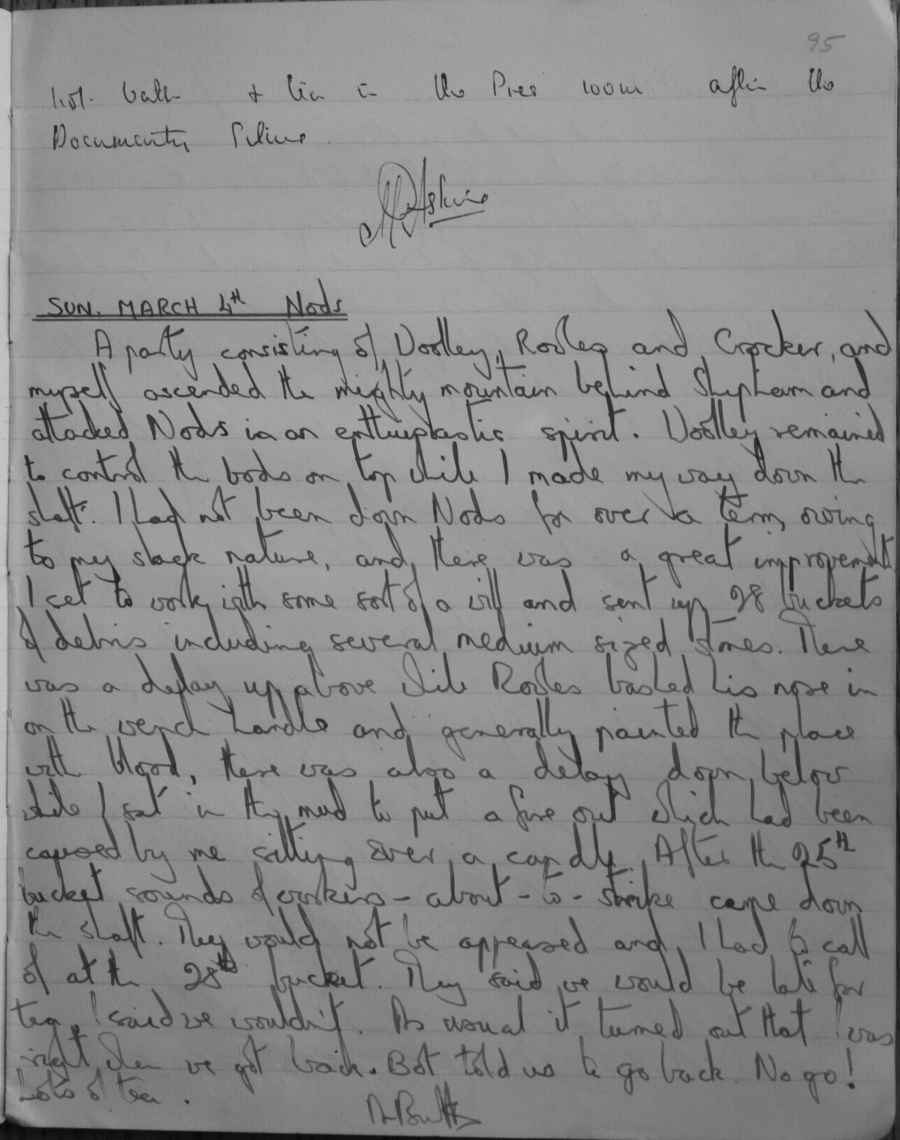 95
hot bath & tea in the Pres room after the
Documentary Films
SUN. MARCH 4th Nods
A party consisting of Woolley, Rodles and Crocker, and
myself ascended the mighty mountain behind Shipham and
attacked Nods in an enthusiastic spirit. Woolley remained
to control the bods on top while I made my way down the
shaft. I had not been down Nods for over a term, owing
to my slack nature, and there was a great improvement
I set to work with some sort of a will and sent up 28 buckets
of debris including several medium sized stones. There
was a delay up above while Rodles bashed his nose in
on the wench handle and generally painted the place
with blood, there was also a delay down below
while I sat in the mud to put a fire out which had been
caused by me sitting over a candle. After the 25th
bucket sounds of workers - about - to - strike came down
the shaft. They would not be appeased and I had to call
of at the 28th bucket. They said we would be late for
tea, I said we wouldn't. As usual it turned out that I was
right when we got back. Bot told us to go back. No go!
Lots of tea.